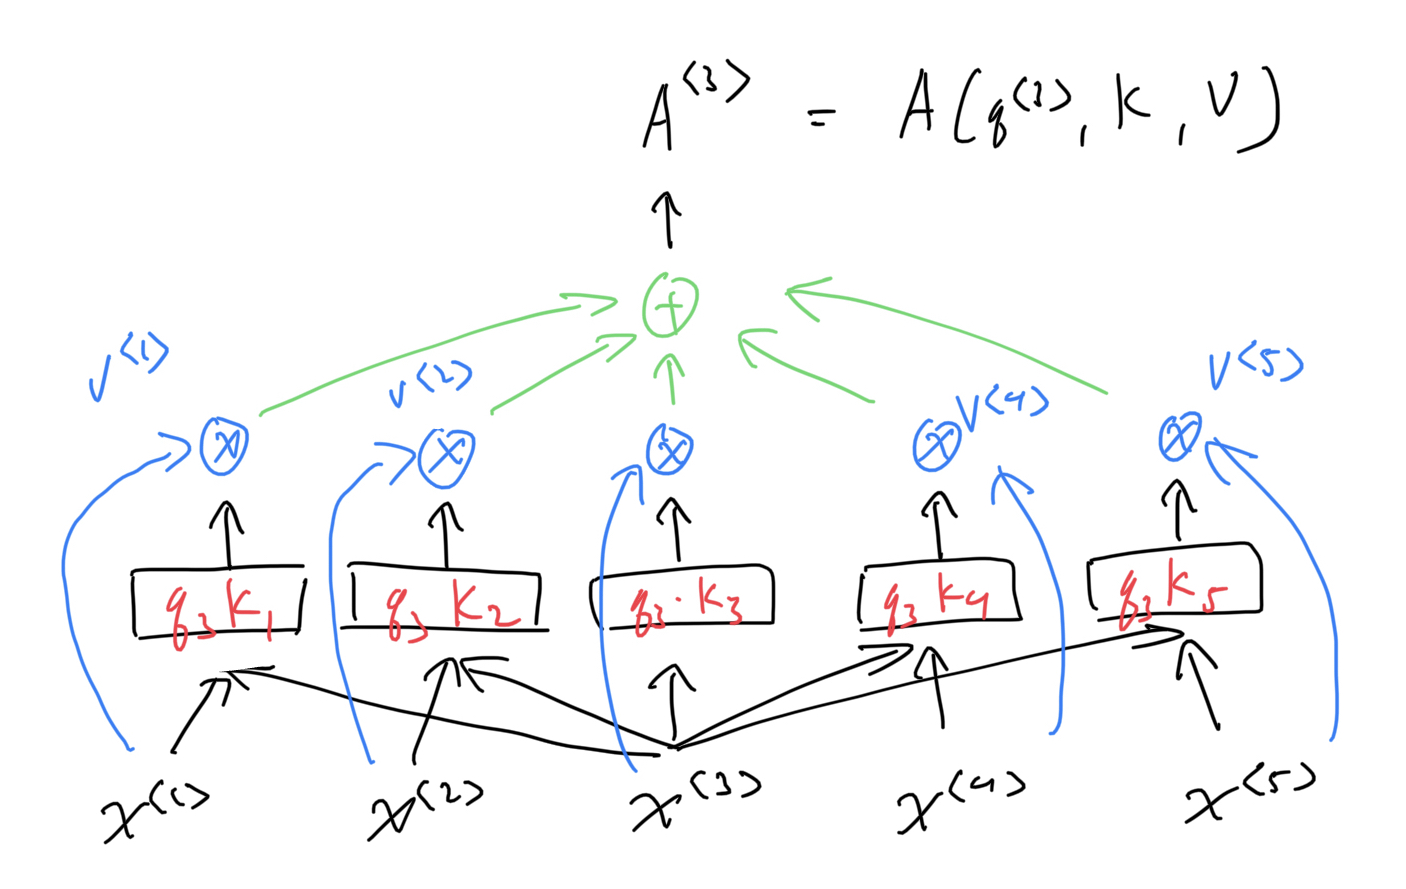 A<3> = A(q<3>, K, V)
+
v<1> v<2> V<4> V<5>
x x x x x
q3 K1 q3 K2 q3·K3 q3 K4 q3 K5
x<1> x<2> x<3> x<4> x<5>